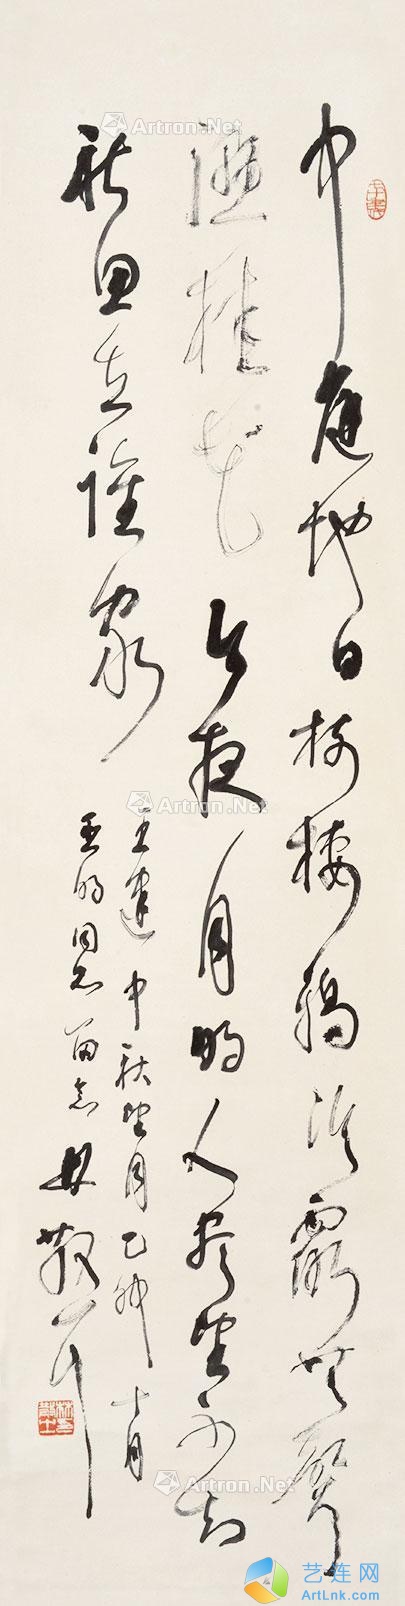 中庭地白树栖鸦冷露无声
湿桂花今夜月明人尽望不知
秋思在谁家
王建中秋望月乙卯十月
亚明同志留念林散之
Artron.Net
Artron.Net
Artron.Net
Artron.Net
Artron.Net
艺连网
ArtLnk.com